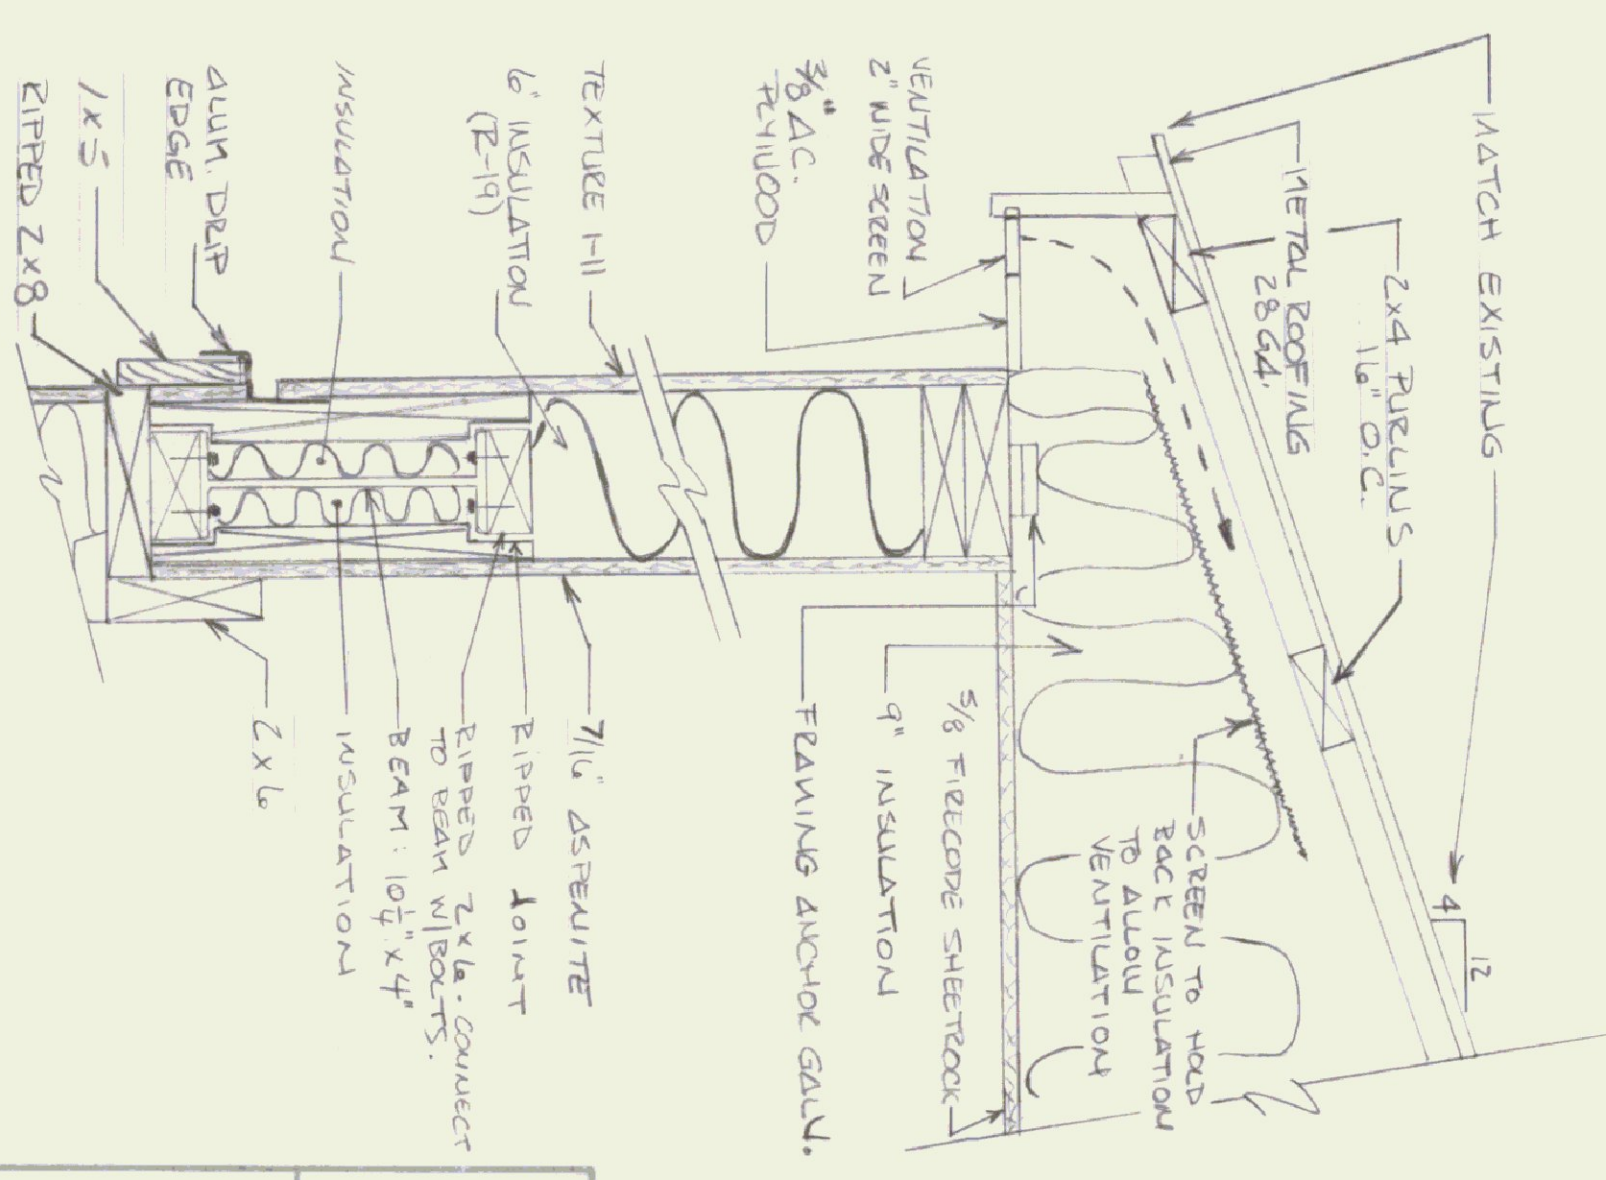 MATCH EXISTING
2x4 PURLINS
16" O.C.
METAL ROOFING
28 GA.
VENTILATION
2" WIDE SCREEN
3/8" AC.
PLYWOOD
TEXTURE 1-11
6" INSULATION
(R-19)
INSULATION
ALUM. DRIP
EDGE
1x5
RIPPED 2x8
4
12
SCREEN TO HOLD
BACK INSULATION
TO ALLOW
VENTILATION
5/8 FIRECODE SHEETROCK
9" INSULATION
FRAMING ANCHOR GALV.
7/16" ASPENITE
RIPPED JOINT
RIPPED 2x6. CONNECT
TO BEAM W/BOLTS.
BEAM: 10 1/4" x 4"
INSULATION
2x6